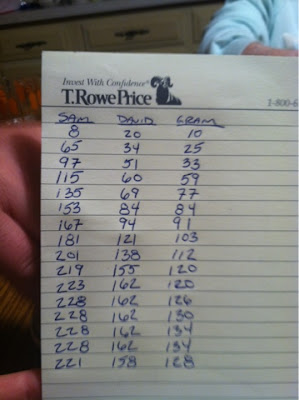 Invest With Confidence®
T.RowePrice
1-800-6
SAM DAVID GRAM
8 20 10
65 34 25
97 51 33
115 60 59
135 69 77
153 84 84
167 94 91
181 121 103
201 138 112
219 155 120
223 162 120
228 162 126
228 162 130
228 162 134
228 162 134
221 158 128